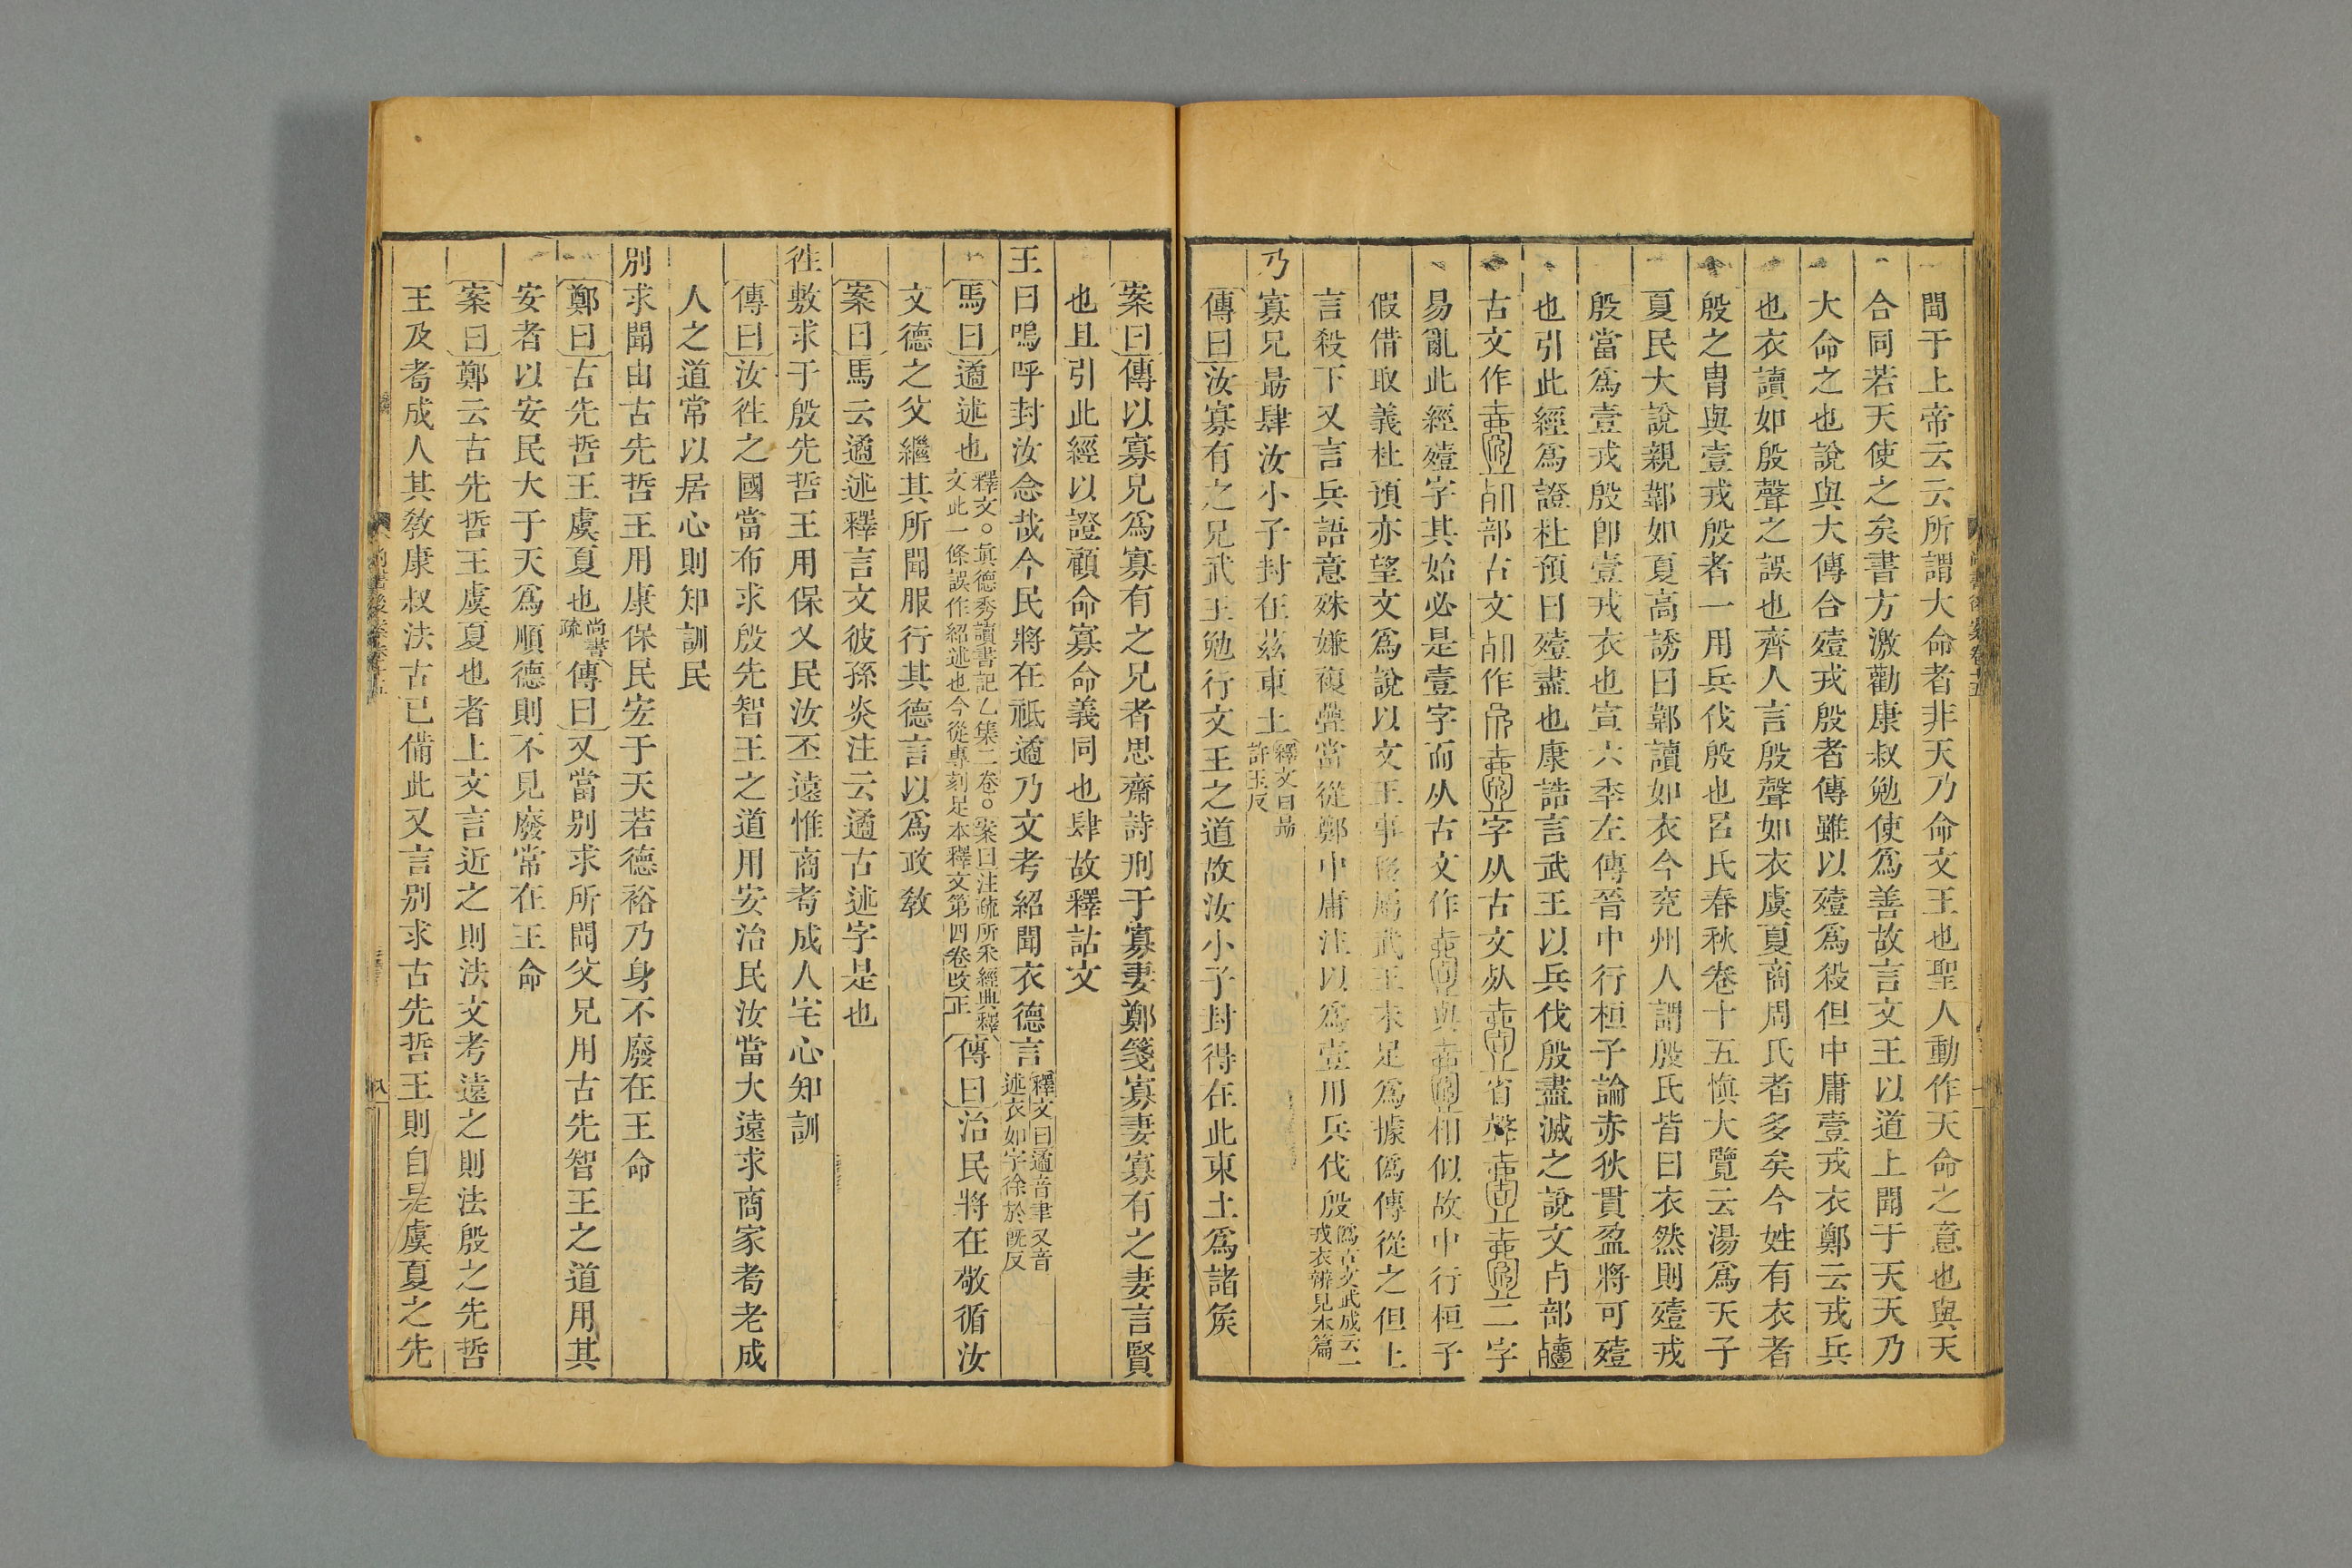 聞于上帝云云所謂大命者非天乃命文王也聖人動作天命之意也與天
合同若天使之矣書方激勸康叔勉使爲善故言文王以道上聞于天天乃
大命之也說與大傳合殪戎殷者傳雖以殪爲殺但中庸壹戎衣鄭云戎兵
也衣讀如殷聲之誤也齊人言殷聲如衣虞夏商周氏者多矣今姓有衣者
殷之胄與壹戎殷者一用兵伐殷也呂氏春秋卷十五慎大覽云湯爲天子
夏民大說親鄣如夏高誘曰鄣讀如衣今兖州人謂殷氏皆曰衣然則殪戎
殷當爲壹戎殷卽壹戎衣也宣六年左傳晉中行桓子論赤狄貫盈將可殪
也引此經爲證杜預曰殪盡也康誥言武王以兵伐殷盡滅之說文歺部
古文作部古文作字从古文从省聲二字
易亂此經殪字其始必是壹字而从古文作與相似故中行桓子
假借取義杜預亦望文爲說以文王事移屬武王未足爲據僞傳從之但上
言殺下又言兵語意殊嫌複疊當從鄭中庸注以爲壹用兵伐殷僞古文武成云一
戎衣辨見本篇
乃寡兄勗肆汝小子封在茲東土釋文曰勗
許玉反
傳曰汝寡有之兄武王勉行文王之道故汝小子封得在此東土爲諸矦
案曰傳以寡兄爲寡有之兄者思齋詩刑于寡妻鄭箋寡妻寡有之妻言賢
也且引此經以證顧命寡命義同也肆故釋詁文
王曰嗚呼封汝念哉今民將在祗遹乃文考紹聞衣德言釋文曰遹音聿又音
述衣如字徐於旣反
馬曰遹述也釋文○眞德秀讀書記乙集二卷○案曰注疏所采經典釋
文此一條誤作紹述也今從專刻足本釋文第四卷改正傳曰治民將在敬循汝
文德之父繼其所聞服行其德言以爲政敎
案曰馬云遹述釋言文彼孫炎注云遹古述字是也
徃敷求于殷先哲王用保乂民汝丕遠惟商耇成人宅心知訓
傳曰汝徃之國當布求殷先智王之道用安治民汝當大遠求商家耇老成
人之道常以居心則知訓民
別求聞由古先哲王用康保民宏于天若德裕乃身不廢在王命
鄭曰古先哲王虞夏也尚書
疏傳曰又當別求所聞父兄用古先智王之道用其
安者以安民大于天爲順德則不見廢常在王命
案曰鄭云古先哲王虞夏也者上文言近之則法文考遠之則法殷之先哲
王及耇成人其敎康叔法古已備此又言別求古先哲王則自是虞夏之先